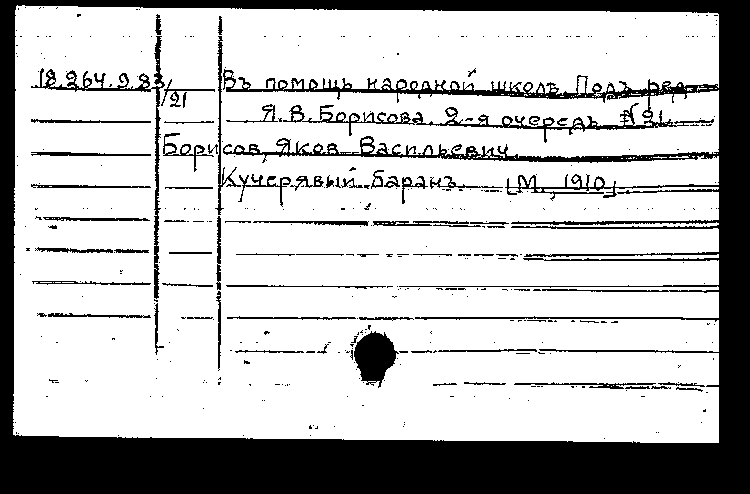 18.264.9.83/21
Въ помощь народной школѣ. Подъ ред.
Я. В. Борисова. 2-я очередь №21.
Борисов, Яков Васильевич.
Кучерявый баранъ. [М., 1910]